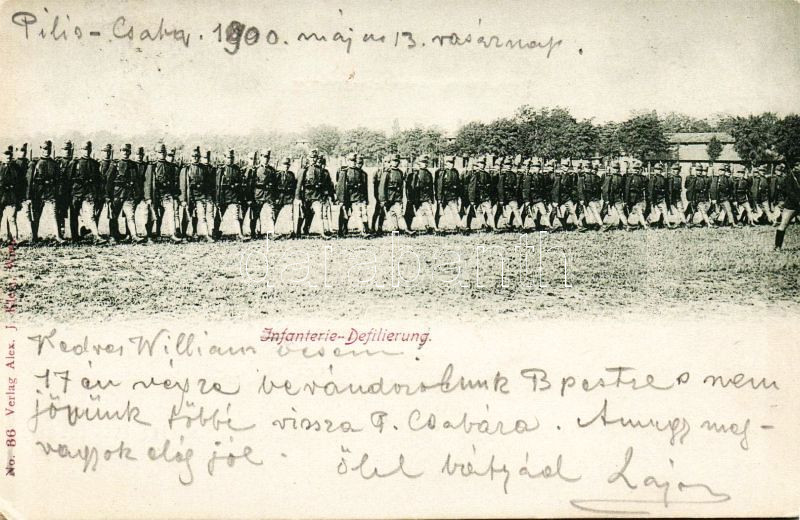 Pilis-Csaba. 1900. május 13. vasárnap.
darabanth
Infanterie-Defilierung.
Kedves William öcsém!
17 én végre bevándorolunk Bpestre s nem
jövünk többé vissza P. Csabára. Amugy meg-
vagyok elég jól. ölel bátyád Lajos
No. 86 Verlag Alex. J.